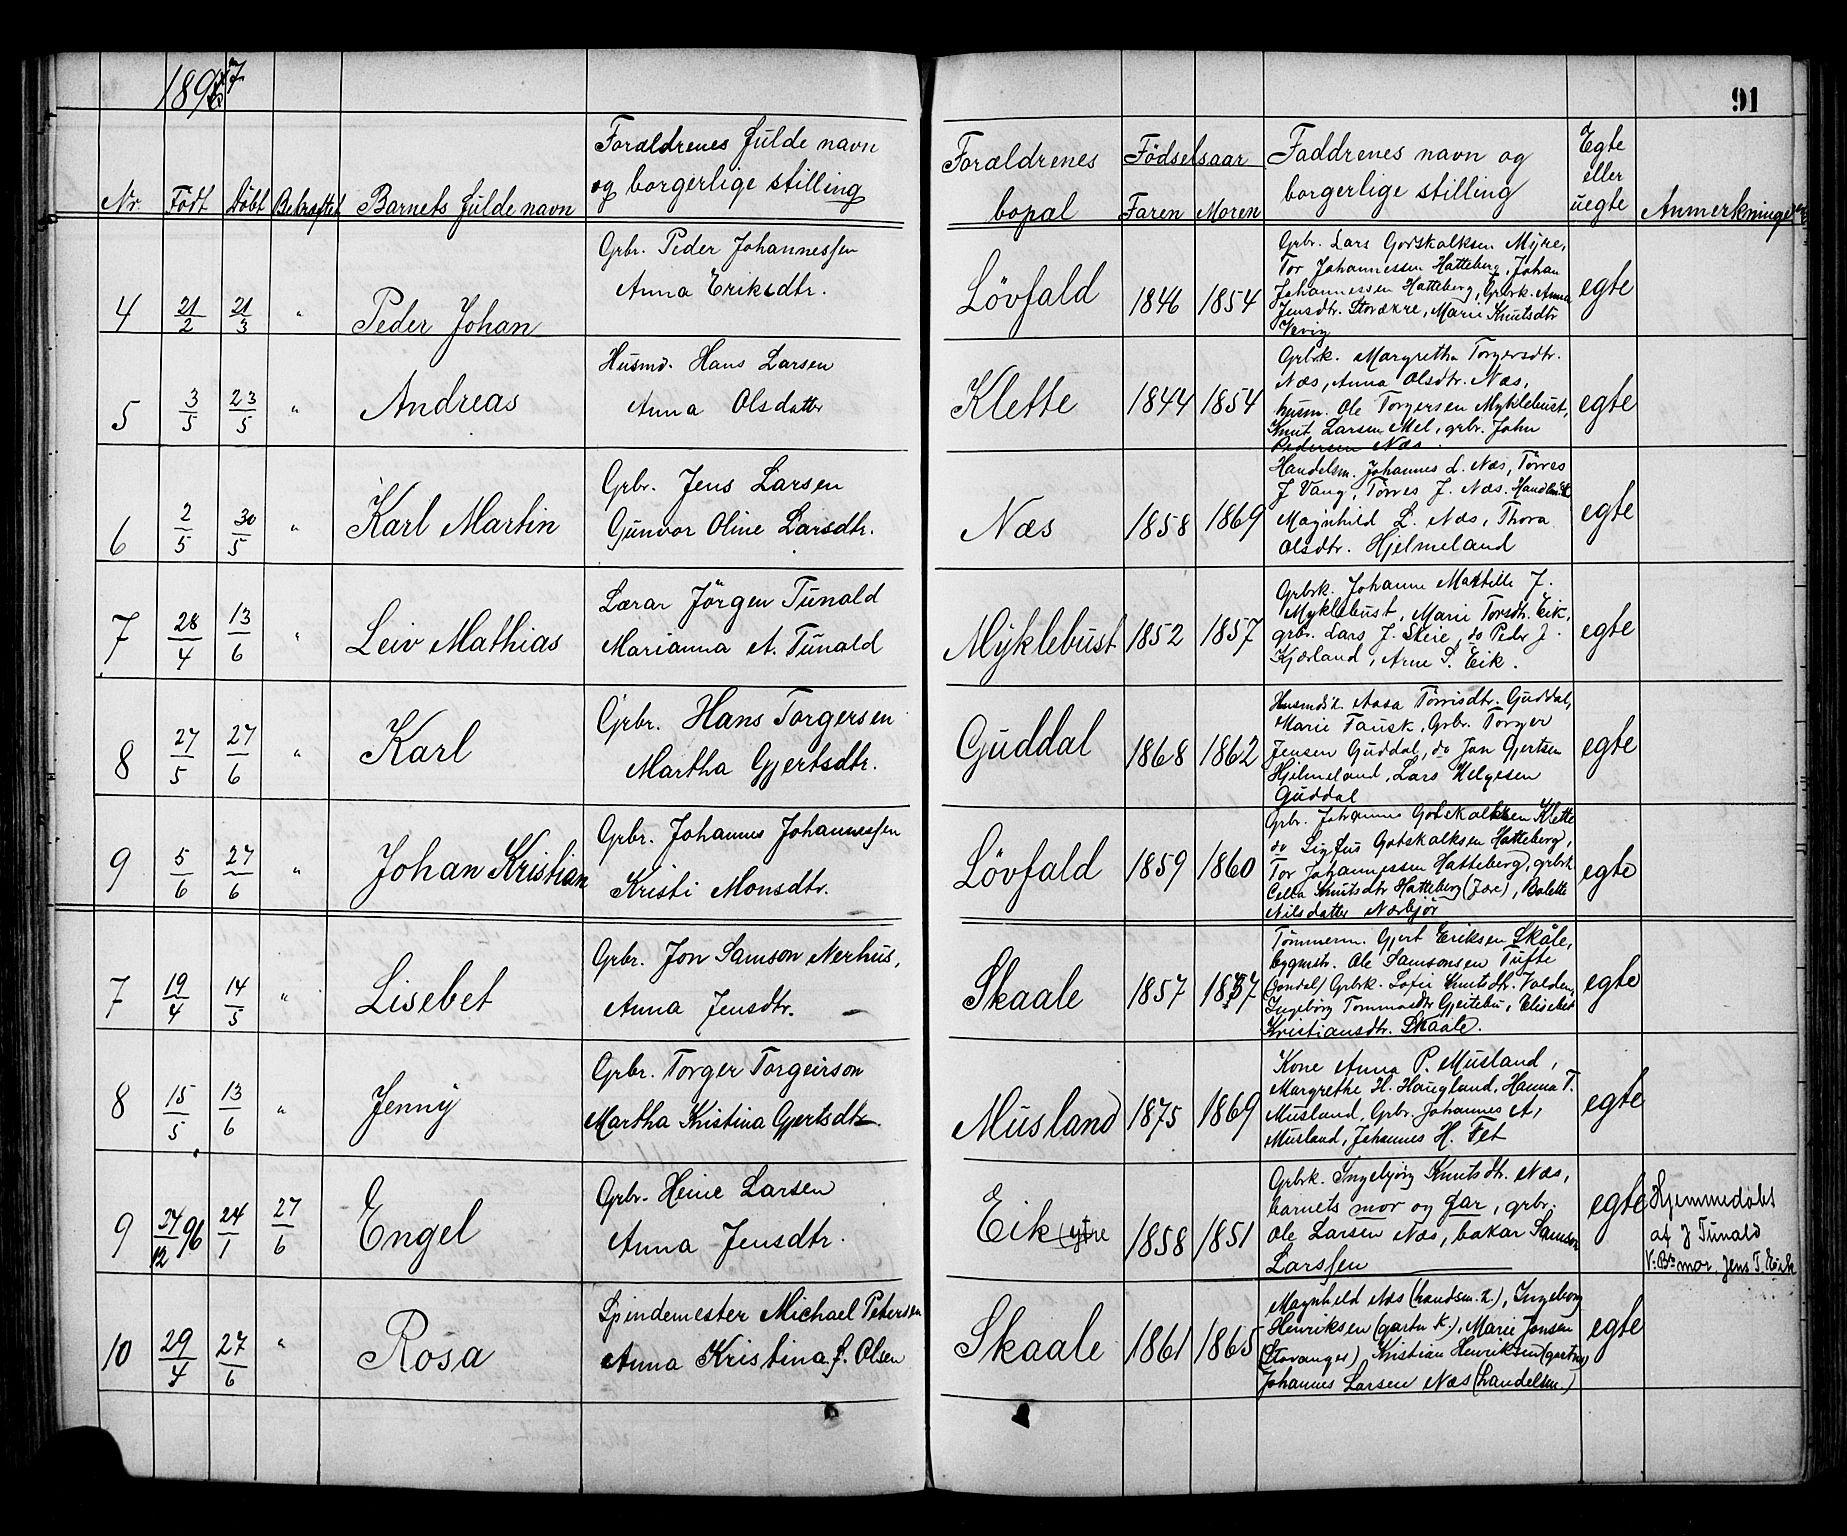 1897
91
Nr. Født Døbt Bekræftet Barnets fulde navn
Forældrenes fulde navn
og borgerlige stilling
Forældrenes
bopal
Fødselsaar
Faren Moren
Faddrenes navn og
borgerlige stilling
Egte
eller
uegte
Anmerkninger
4 21/2 21/3 " Peder Johan
Grbr. Peder Johannessen
Anna Eriksdtr.
Lövfald 1846 1854
Grbr. Lars Godskalksen Myre,
Tor Johannessen Hatteberg, Johan
Johannessen Hatteberg, Grbrk. Anna
Jensdtr. Storækre, Marie Knutsdtr
Vevig
egte
5 3/5 23/5 " Andreas
Husmd. Hans Larsen
Anna Olsdatter
Klette 1844 1854
Grbrk. Margretha Torgersdtr.
Næs, Anna Olsdtr. Næs,
husm. Ole Torgersen Myklebust,
Knut Larsen Mel, grbr. John
Pedersen Næs.
egte
6 2/5 30/5 " Karl Martin
Grbr. Jens Larsen
Gunvor Oline Larsdtr.
Næs 1858 1869
Handelsm. Johannes L. Næs, Törres
J Vang, Törres J. Næs.
Magnhild L. Næs, Thora
Olsdtr. Hjelmeland
egte
7 28/4 13/6 " Leiv Mathias
Lærar Jörgen Tunald
Marianna A. Tunald
Myklebust 1852 1857
Grbrk. Johanne Matille J.
Myklebust, Marie Torsdtr. Eik,
grbr. Lars J. Skeie, do Peder J.
Kjærland, Arne S. Eik.
egte
8 27/5 27/6 " Karl
Grbr. Hans Torgersen
Martha Gjertsdtr.
Guddal 1868 1862
Aasa Törrisdtr. Guddal,
Marie Fausk, Grbr. Torger
Jensen Guddal, do Jon Gjertsen
Hjelmeland, Lars Helgesen
Guddal
egte
9 5/6 27/6 " Johan Kristian
Grbr. Johannes Johannessen
Kristi Monsdtr.
Lövfald 1859 1860
Grbr. Johannes Godskalksen Klette
do Sigfus Gotskalksen Hatteberg,
Tor Johannessen Hatteberg, grbrk
Celia Knutsdtr Hatteberg, Bolette
Nilsdatter Nærbjør
egte
7 19/4 14/5 " Lisebet
Grbr. Jon Samson Nerhus,
Anna Jensdtr.
Skaale 1857
Tömmerm. Gjert Eriksen Skåle,
bygmstr. Ole Samsonsen Tufte
(Jondal) Grbrk. Sofie Knutsdtr. Valden,
Ingebörg Tommasdtr Gjeitebu, Elisebet
Kristiansdtr. Skaale.
egte
8 15/5 13/6 " Jenny
Grbr. Torger Torgeirson
Martha Kristina Gjertsdtr.
Musland 1875 1869
Kone Anna P. Musland,
Margrethe H. Haugland, Hanna T.
Musland, Grbr. Johannes A,
Musland, Johannes H. Fet
egte
9 /12 96 24/1 27/6 Engel
Grbr. Heine Larsen
Anna Jensdtr.
Eik (ytre 1858 1851
Grbrk. Ingebjörg Knutsdtr. Næs,
barnets mor og far, grbr.
Ole Larsen Næs, bakar Samson
Larssen
egte
Hjemmedøbt
af J Tunald
V. Bs mor, Jens T. Eik
10 29/4 27/6 " Rosa
Spindemester Michael Petersen
Anna Kristina f. Olsen
Skaale 1861 1865
Magnhild Næs (handsm. k.), Ingeborg
Henriksen (gartn k.), Marie Jonsen
(Stavanger) Kristian Henriksen (gartner)
Johannes Larsen Næs (handelsm.)
egte